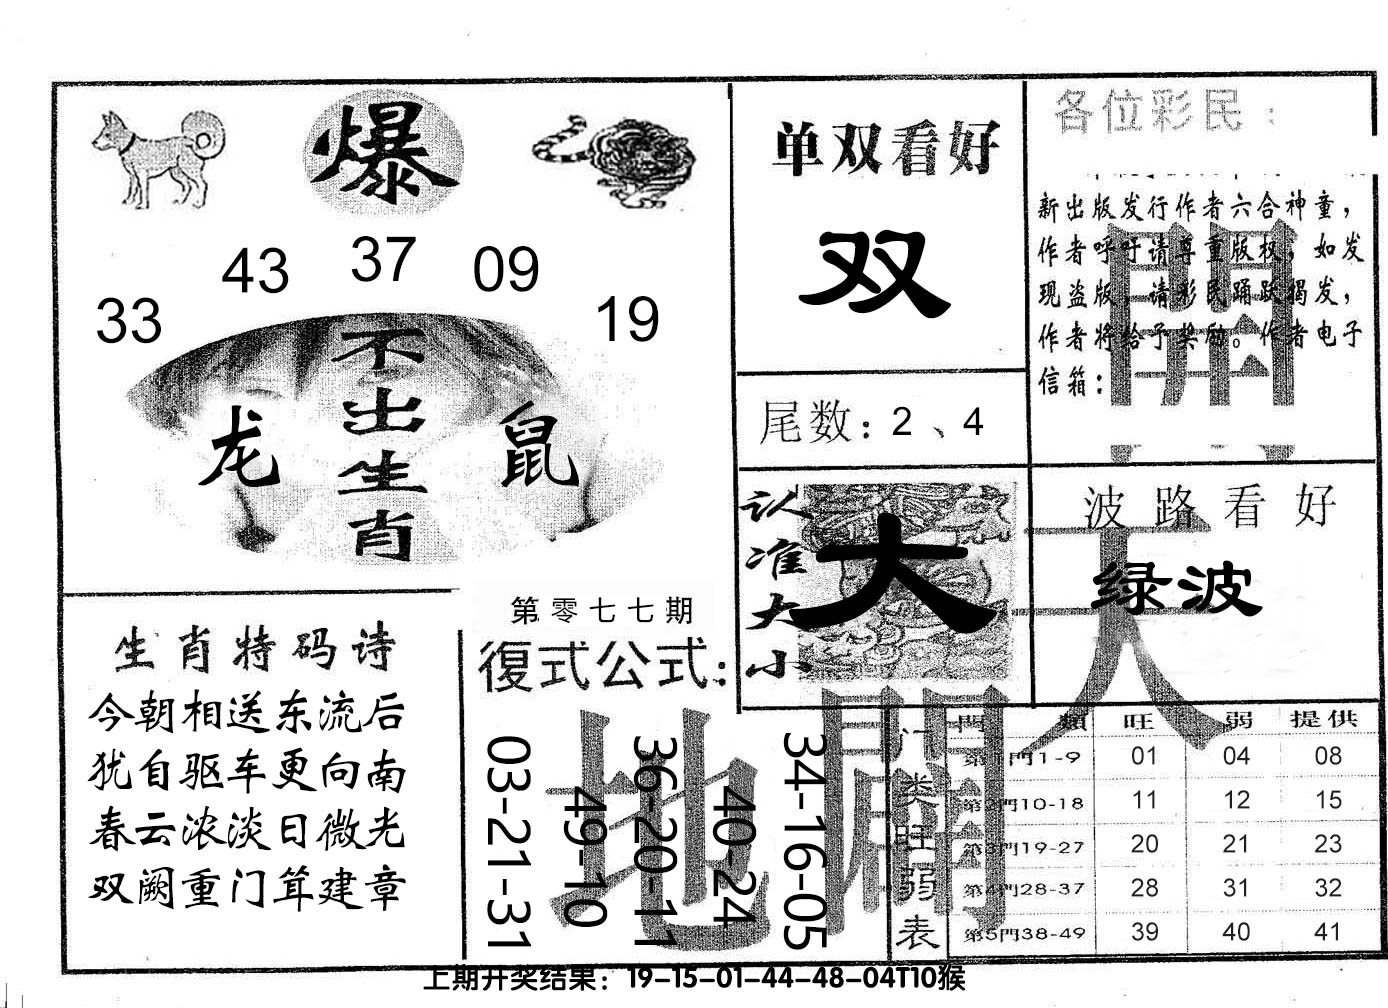 爆
33 43 37 09 19
不出生肖
龙 鼠
单双看好
双
尾数：2、4
各位彩民：
新出版发行作者六合神童，
作者呼吁请尊重版权，如发
现盗版，请彩民踊跃揭发，
作者将给予奖励。作者电子
信箱：
認准大小
大
波路看好
绿波
生肖特码诗
今朝相送东流后
犹自驱车更向南
春云浓淡日微光
双阙重门耸建章
第零七七期
復式公式：
03-21-31
49-10
36-20-11
40-24
34-16-05
天地
門類 旺 弱 提供
第1門1-9 01 04 08
第2門10-18 11 12 15
第3門19-27 20 21 23
第4門28-37 28 31 32
第5門38-49 39 40 41
门类旺弱表
上期开奖结果：19-15-01-44-48-04T10猴